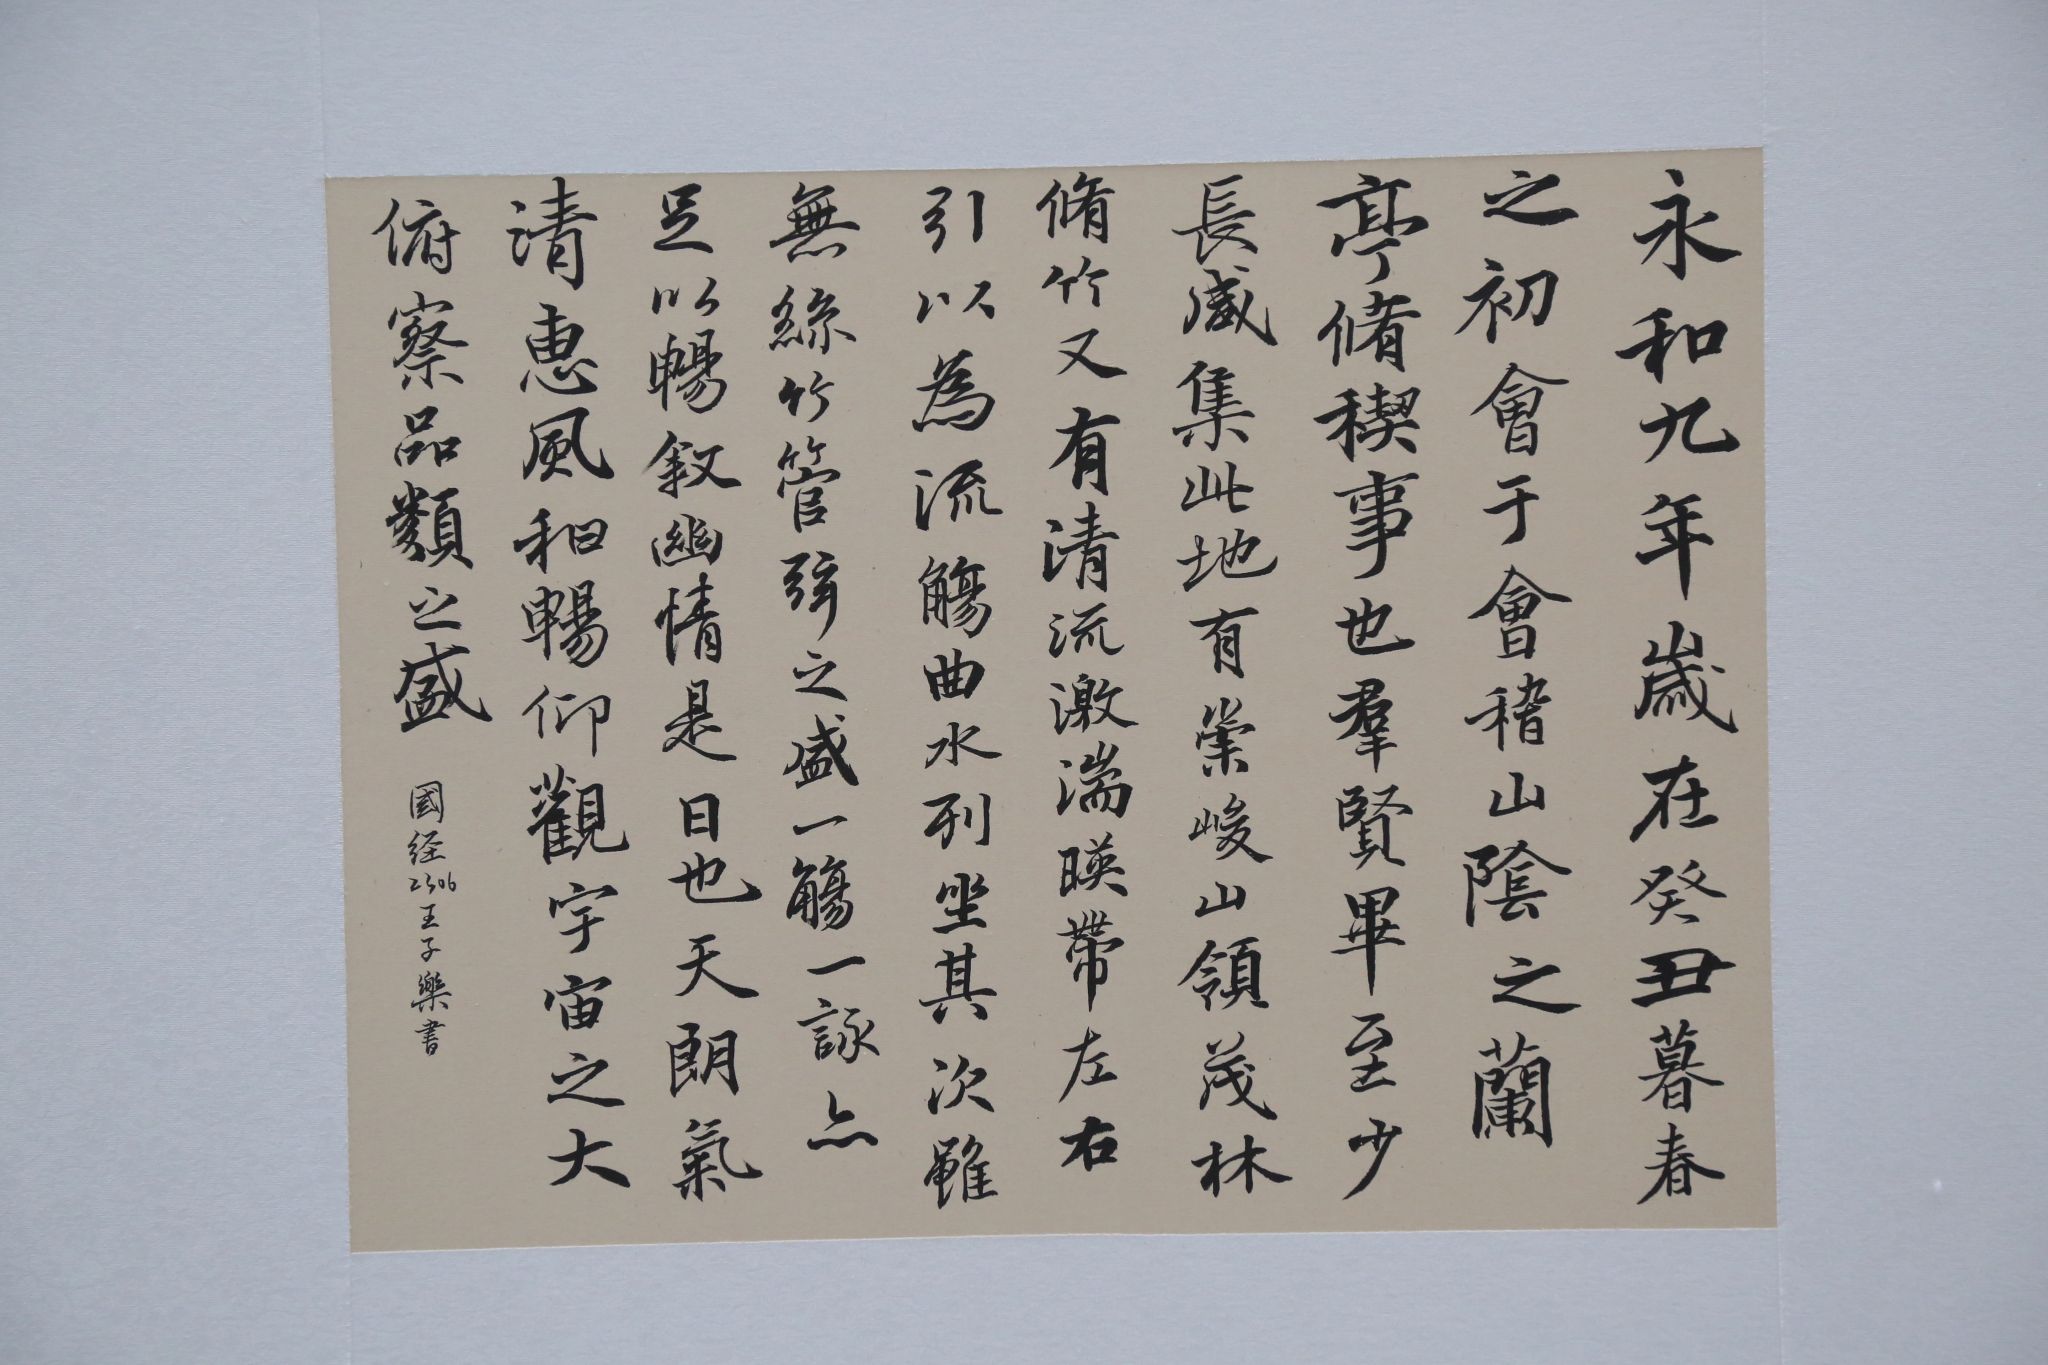 永和九年歲在癸丑暮春
之初會于會稽山陰之蘭
亭脩稧事也羣賢畢至少
長咸集此地有崇峻山領茂林
脩竹又有清流激湍暎帶左右
引以為流觴曲水列坐其次雖
無絲竹管弦之盛一觴一詠亦
足以暢敘幽情是日也天朗氣
清惠風和暢仰觀宇宙之大
俯察品類之盛
國经2306王子樂書